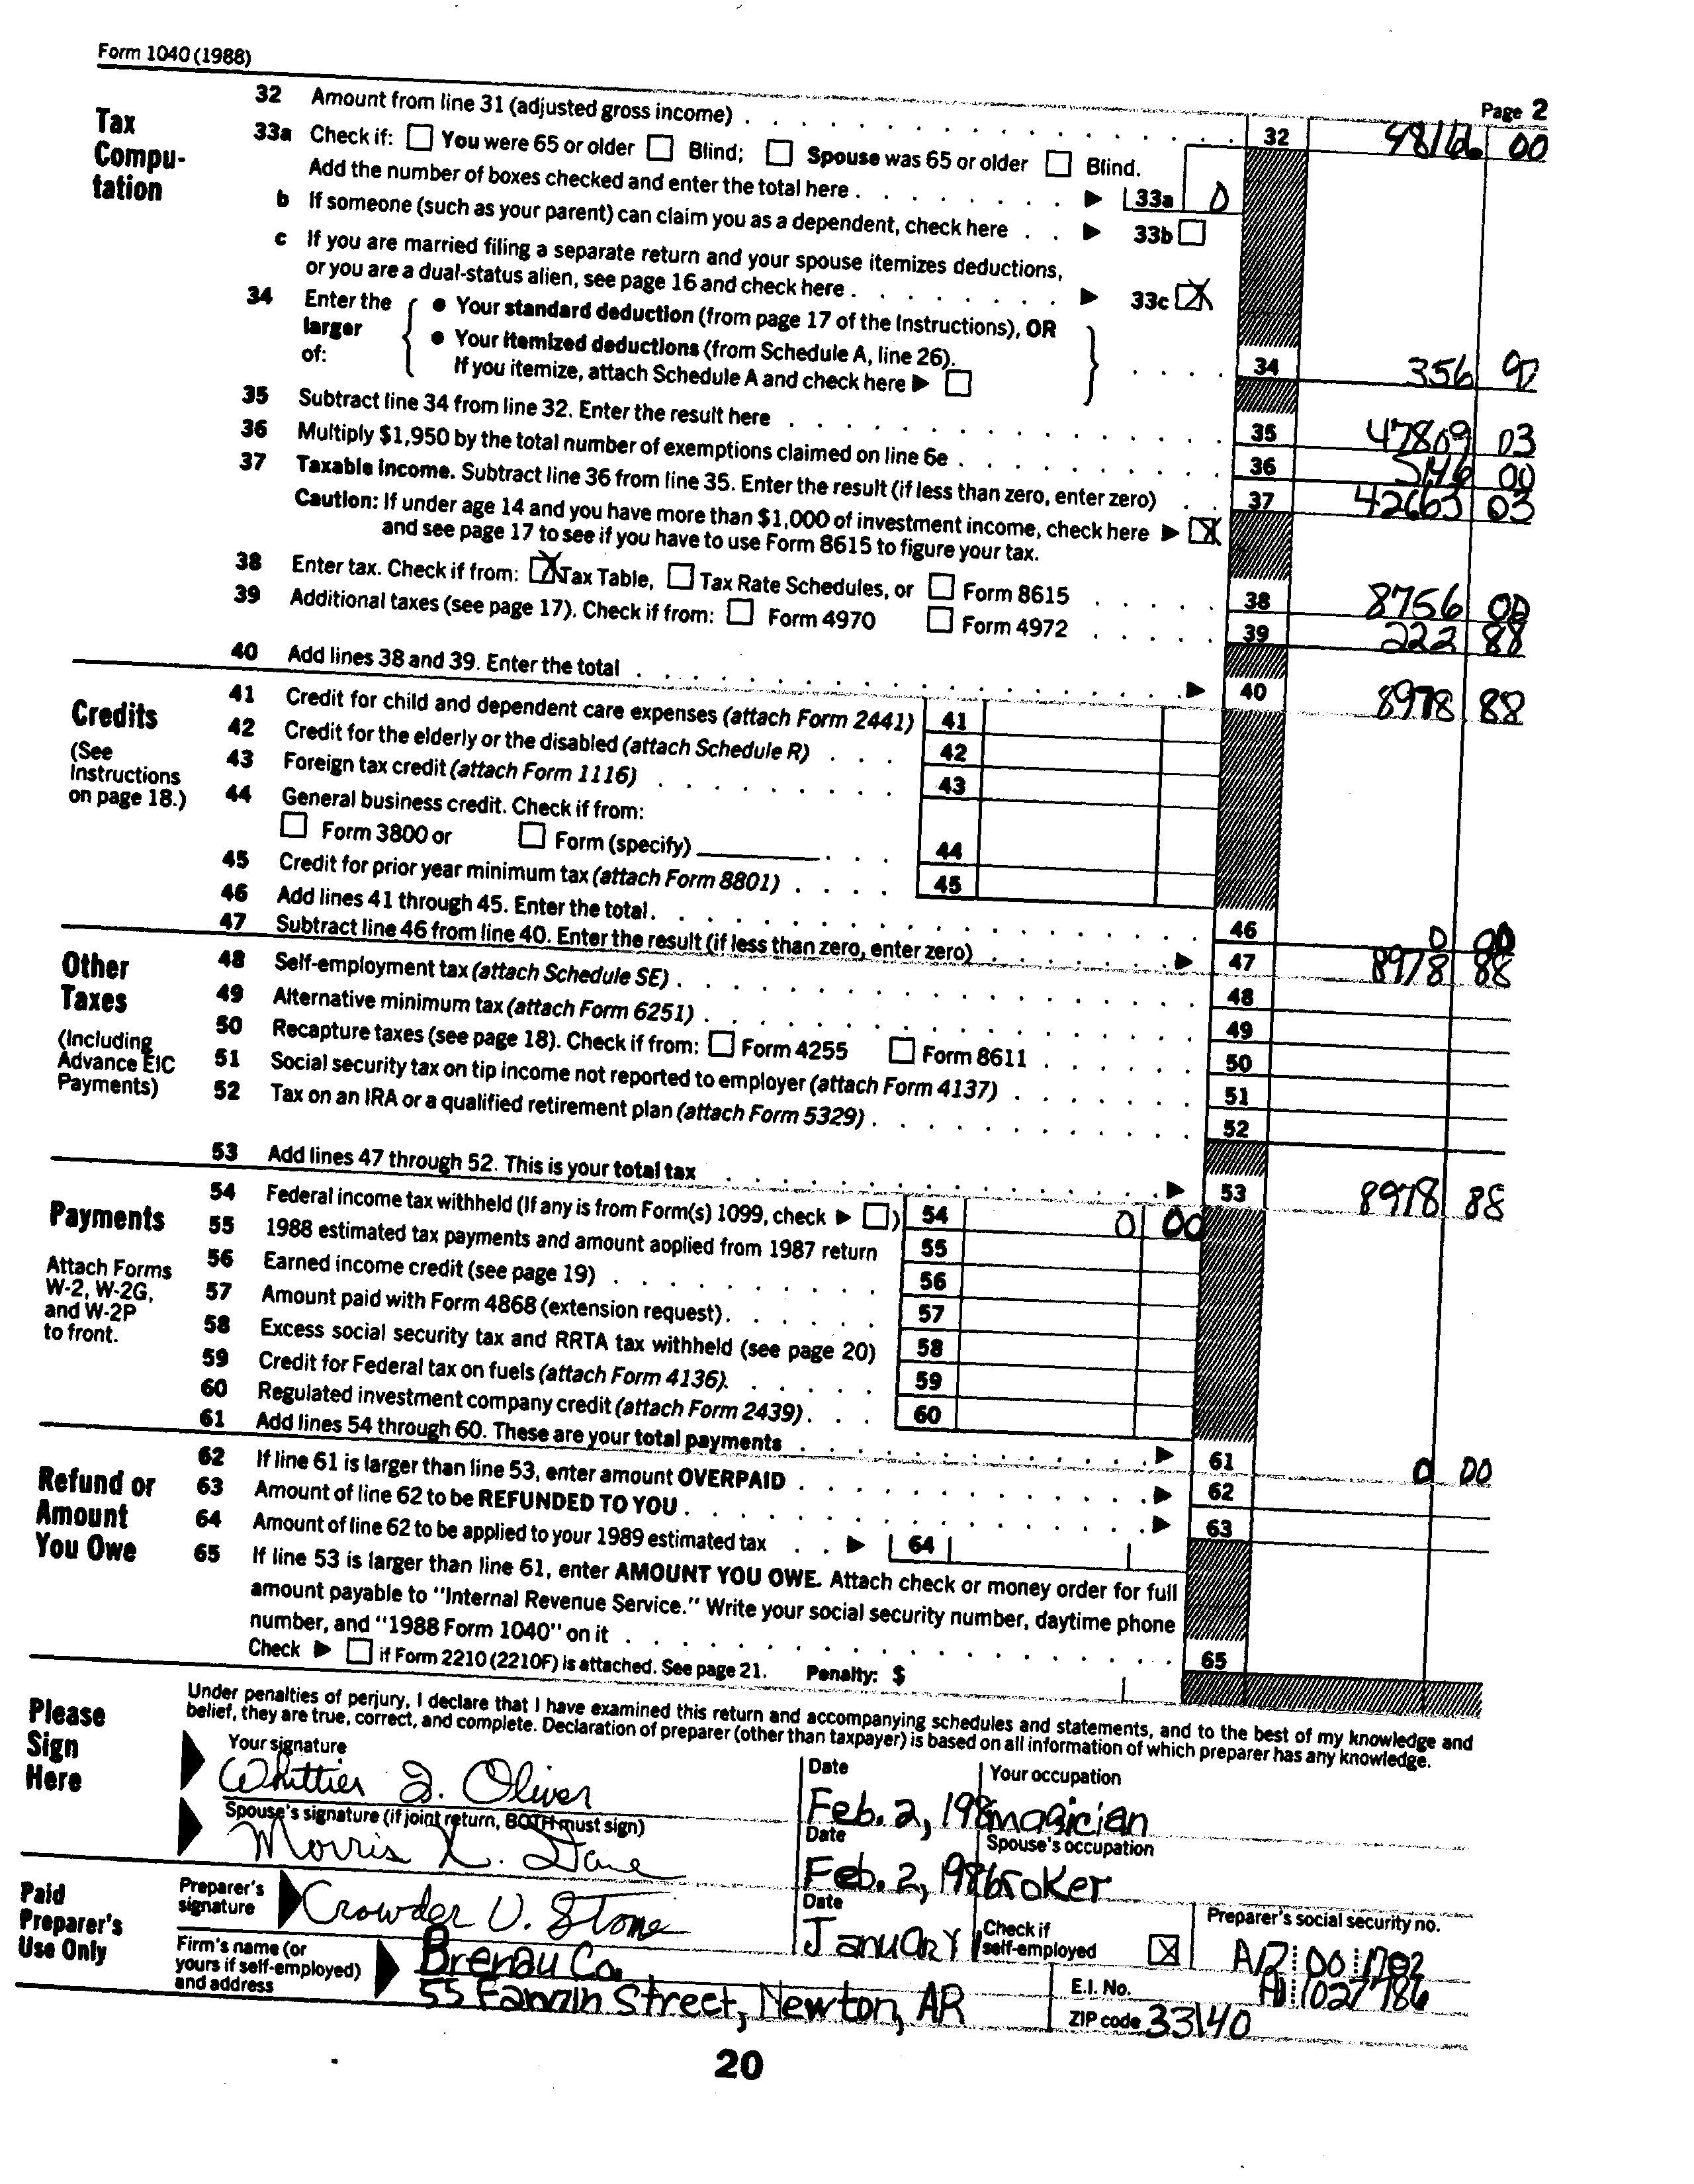 Form 1040 (1988)
Page 2
Tax Compu-tation
32 Amount from line 31 (adjusted gross income) 32 48166 00
33a Check if: You were 65 or older Blind; Spouse was 65 or older Blind.
Add the number of boxes checked and enter the total here 33a 0
b If someone (such as your parent) can claim you as a dependent, check here 33b
c If you are married filing a separate return and your spouse itemizes deductions,
or you are a dual-status alien, see page 16 and check here 33c X
34 Enter the larger of:
● Your standard deduction (from page 17 of the Instructions), OR
● Your itemized deductions (from Schedule A, line 26).
If you itemize, attach Schedule A and check here ▶ 34 356 97
35 Subtract line 34 from line 32. Enter the result here 35 47809 03
36 Multiply $1,950 by the total number of exemptions claimed on line 6e 36 5146 00
37 Taxable income. Subtract line 36 from line 35. Enter the result (if less than zero, enter zero) 37 42663 03
Caution: If under age 14 and you have more than $1,000 of investment income, check here ▶ X
and see page 17 to see if you have to use Form 8615 to figure your tax.
38 Enter tax. Check if from: X Tax Table, Tax Rate Schedules, or Form 8615 38 8756 00
39 Additional taxes (see page 17). Check if from: Form 4970 Form 4972 39 222 88
40 Add lines 38 and 39. Enter the total ▶ 40 8978 88
Credits
(See Instructions on page 18.)
41 Credit for child and dependent care expenses (attach Form 2441) 41
42 Credit for the elderly or the disabled (attach Schedule R) 42
43 Foreign tax credit (attach Form 1116) 43
44 General business credit. Check if from:
Form 3800 or Form (specify) 44
45 Credit for prior year minimum tax (attach Form 8801) 45
46 Add lines 41 through 45. Enter the total 46 0 00
47 Subtract line 46 from line 40. Enter the result (if less than zero, enter zero) ▶ 47 8978 88
Other Taxes
(Including Advance EIC Payments)
48 Self-employment tax (attach Schedule SE) 48
49 Alternative minimum tax (attach Form 6251) 49
50 Recapture taxes (see page 18). Check if from: Form 4255 Form 8611 50
51 Social security tax on tip income not reported to employer (attach Form 4137) 51
52 Tax on an IRA or a qualified retirement plan (attach Form 5329) 52
53 Add lines 47 through 52. This is your total tax ▶ 53 8978 88
Payments
Attach Forms W-2, W-2G, and W-2P to front.
54 Federal income tax withheld (If any is from Form(s) 1099, check ▶ ) 54 0 00
55 1988 estimated tax payments and amount applied from 1987 return 55
56 Earned income credit (see page 19) 56
57 Amount paid with Form 4868 (extension request) 57
58 Excess social security tax and RRTA tax withheld (see page 20) 58
59 Credit for Federal tax on fuels (attach Form 4136) 59
60 Regulated investment company credit (attach Form 2439) 60
61 Add lines 54 through 60. These are your total payments ▶ 61 0 00
Refund or Amount You Owe
62 If line 61 is larger than line 53, enter amount OVERPAID ▶ 62
63 Amount of line 62 to be REFUNDED TO YOU ▶ 63
64 Amount of line 62 to be applied to your 1989 estimated tax ▶ 64
65 If line 53 is larger than line 61, enter AMOUNT YOU OWE. Attach check or money order for full
amount payable to "Internal Revenue Service." Write your social security number, daytime phone
number, and "1988 Form 1040" on it 65
Check ▶ if Form 2210 (2210F) is attached. See page 21. Penalty: $
Please Sign Here
Under penalties of perjury, I declare that I have examined this return and accompanying schedules and statements, and to the best of my knowledge and
belief, they are true, correct, and complete. Declaration of preparer (other than taxpayer) is based on all information of which preparer has any knowledge.
Your signature Date Your occupation
Whittier Oliver Feb. 2, magician
Spouse's signature (if joint return, BOTH must sign) Date Spouse's occupation
Morris X. Dane Feb. 2, broker
Paid Preparer's Use Only
Preparer's signature Crowder U. Stone Date January Check if self-employed X Preparer's social security no.
Firm's name (or yours if self-employed) and address
Brenau Co. E.I. No.
55 Fannin Street, Newton, AR ZIP code 33140
20